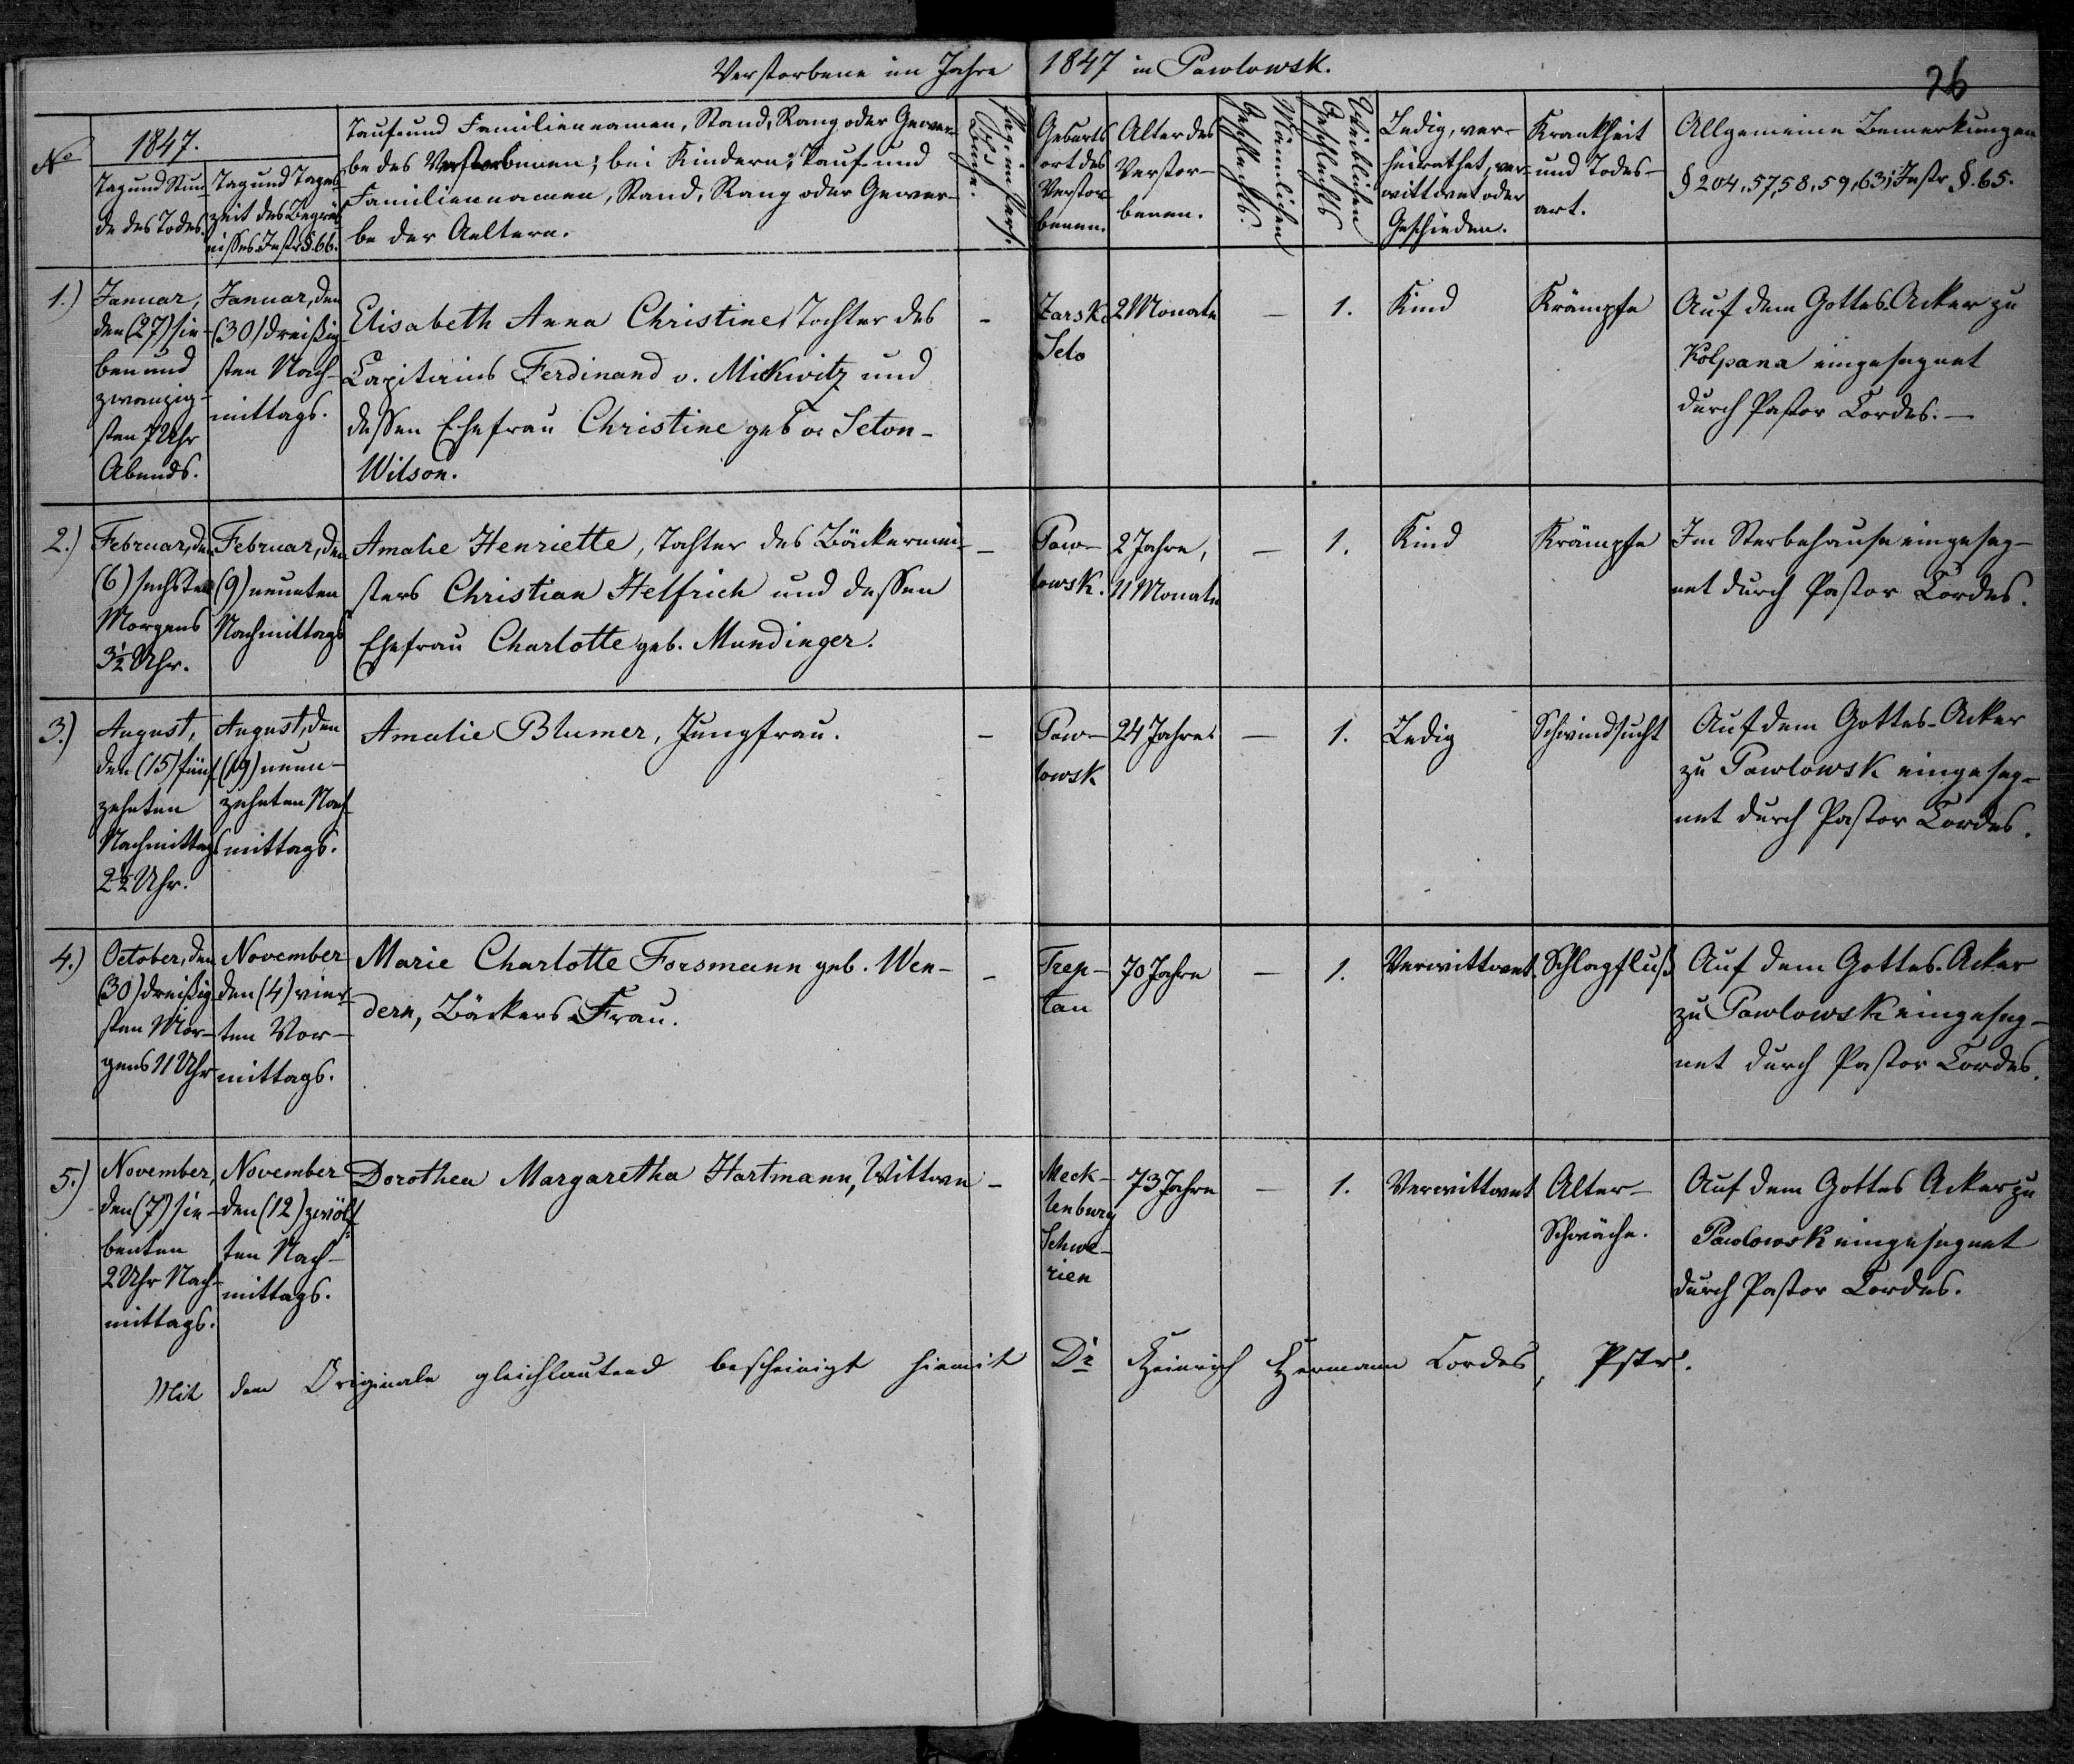 Verstorbene im Jahre 1847 in Pawlowsk.
26
No
1847.
Tag und Stun-
de des Todes.
Tag und Tages-
zeit des Begräb-
nisses Instr. § 66.
Tauf und Familiennamen, Stand, Rang oder Gewer-
be des Verstorbenen; bei Kindern; Tauf und
Familiennamen, Stand, Rang oder Gewer-
be der Aeltern.
Geburts
ort des
Verstor-
benen.
Alter des
Verstor-
benen.
Männlichen
Geschlechts.
Weiblichen
Geschlechts
Ledig, ver-
heirathet, ver-
wittwet oder
Geschieden.
Krankheit
und Todes-
art.
Allgemeine Bemerkungen
§ 204, 57, 58, 59, 63; Instr. §. 65.
1.)
Januar,
den (27) sie-
ben und
zwanzig-
sten 7 Uhr
Abends.
Januar, den
(30) dreißig-
sten Nach-
mittags.
Elisabeth Anna Christine, Tochter des
Capitains Ferdinand v. Mickwitz und
dessen Ehefrau Christine geb v. Seton-
Wilson.
-
Zarsk.
Selo
2 Monate
-
1.
Kind
Krämpfe
Auf dem Gottes-Acker zu
Kolpana eingesegnet
durch Pastor Cordes. -
2.)
Februar, den
(6) sechsten
Morgens
3½ Uhr.
Februar, den
(9) neunten
Nachmittags
Amalie Henriette, Tochter des Bäckermei-
sters Christian Helfrich und dessen
Ehefrau Charlotte geb. Mundinger.
-
Paw-
lowsk.
2 Jahre,
11 Monate
-
1.
Kind
Krämpfe
Im Sterbehause eingeseg-
net durch Pastor Cordes.
3.)
August,
den (15) fünf
zehnten
Nachmittags
2½ Uhr.
August, den
(19) neun-
zehnten Nach-
mittags.
Amalie Blumer, Jungfrau.
-
Paw-
lowsk
24 Jahre
-
1.
Ledig
Schwindsucht
Auf dem Gottes-Acker
zu Pawlowsk eingeseg-
net durch Pastor Cordes.
4.)
October, den
(30) dreißig-
sten Mor-
gens 11 Uhr
November
den (4) vier-
ten Vor-
mittags.
Marie Charlotte Forsmann geb. Wen-
dern, Bäckers Frau.
-
Trep-
tau
70 Jahre
-
1.
Verwittwet.
Schlagfluß
Auf dem Gottes-Acker
zu Pawlowsk eingeseg-
net durch Pastor Cordes.
5.)
November,
den (7) sie-
benten
2 Uhr Nach-
mittags.
November
den (12) zwölf-
ten Nach-
mittags.
Dorothea Margaretha Hartmann, Wittwe
-
Meck-
lenburg
Schwe-
rien
73 Jahre
-
1.
Verwittwet
Alter-
Schwäche.
Auf dem Gottes Acker zu
Pawlowsk eingesegnet
durch Pastor Cordes.
Mit dem Originale gleichlautend bescheinigt hiemit Dr Heinrich Hermann Cordes, Pstr.